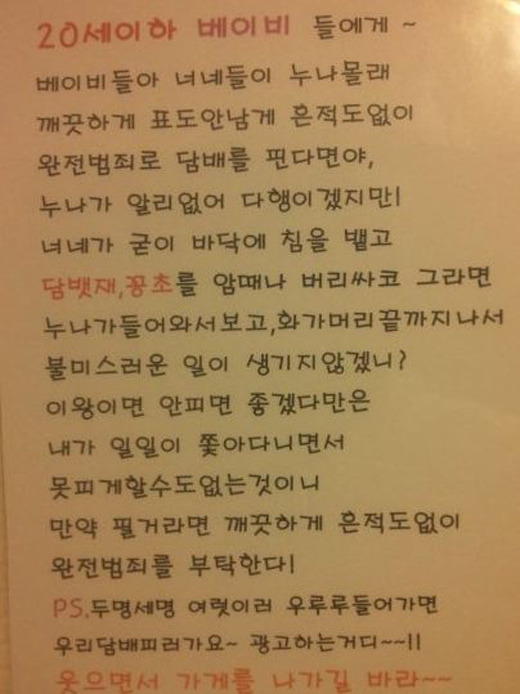 20세이하 베이비 들에게 ~
베이비들아 너네들이 누나몰래
깨끗하게 표도안남게 흔적도없이
완전범죄로 담배를 핀다면야,
누나가 알리없어 다행이겠지만|
너네가 굳이 바닥에 침을 뱉고
담뱃재,꽁초를 암때나 버리싸코 그라면
누나가들어와서보고,화가머리끝까지나서
불미스러운 일이 생기지않겠니?
이왕이면 안피면 좋겠다만은
내가 일일이 쫓아다니면서
못피게할수도없는것이니
만약 필거라면 깨끗하게 흔적도없이
완전범죄를 부탁한다|
PS.두명세명 여럿이러 우루루들어가면
우리담배피러가요~ 광고하는거디~~||
웃으면서 가게를 나가길 바라~~